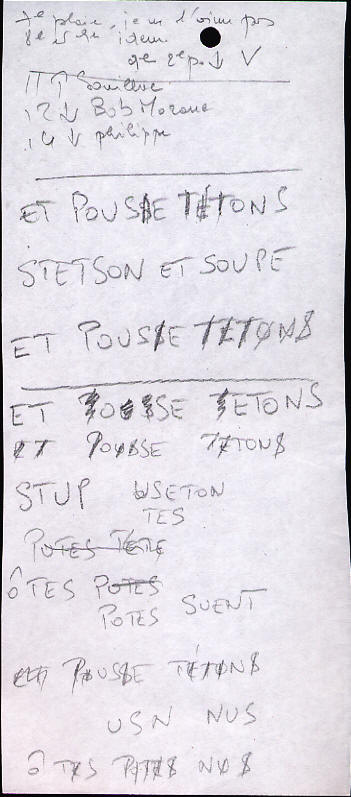 je
idem
de
12 ↓ Bob Morane
14 philippe
ET POUSSE TÉTONS
STETSON ET SOUPE
ET POUSSE TETONS
ET POUSSE TETONS
ET POUSSE TETONS
STUP USETON
TES
POTES TETE
ÔTES POTES
POTES SUENT
ET POUSSE TÉTONS
USN NUS
Ô TES PATES NUS